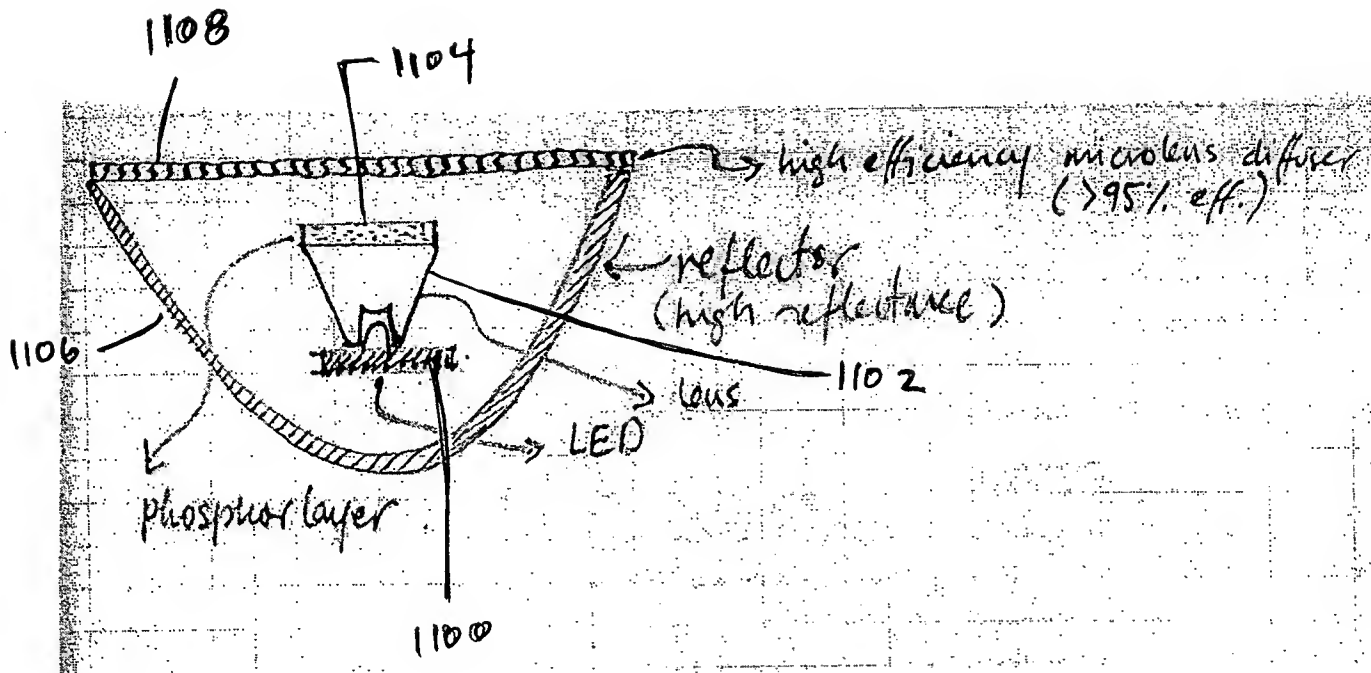 1108
1104
high efficiency microlens diffuser
(>95% eff.)
reflector
(high reflectance)
1106
1102
lens
LED
phosphor layer
1100